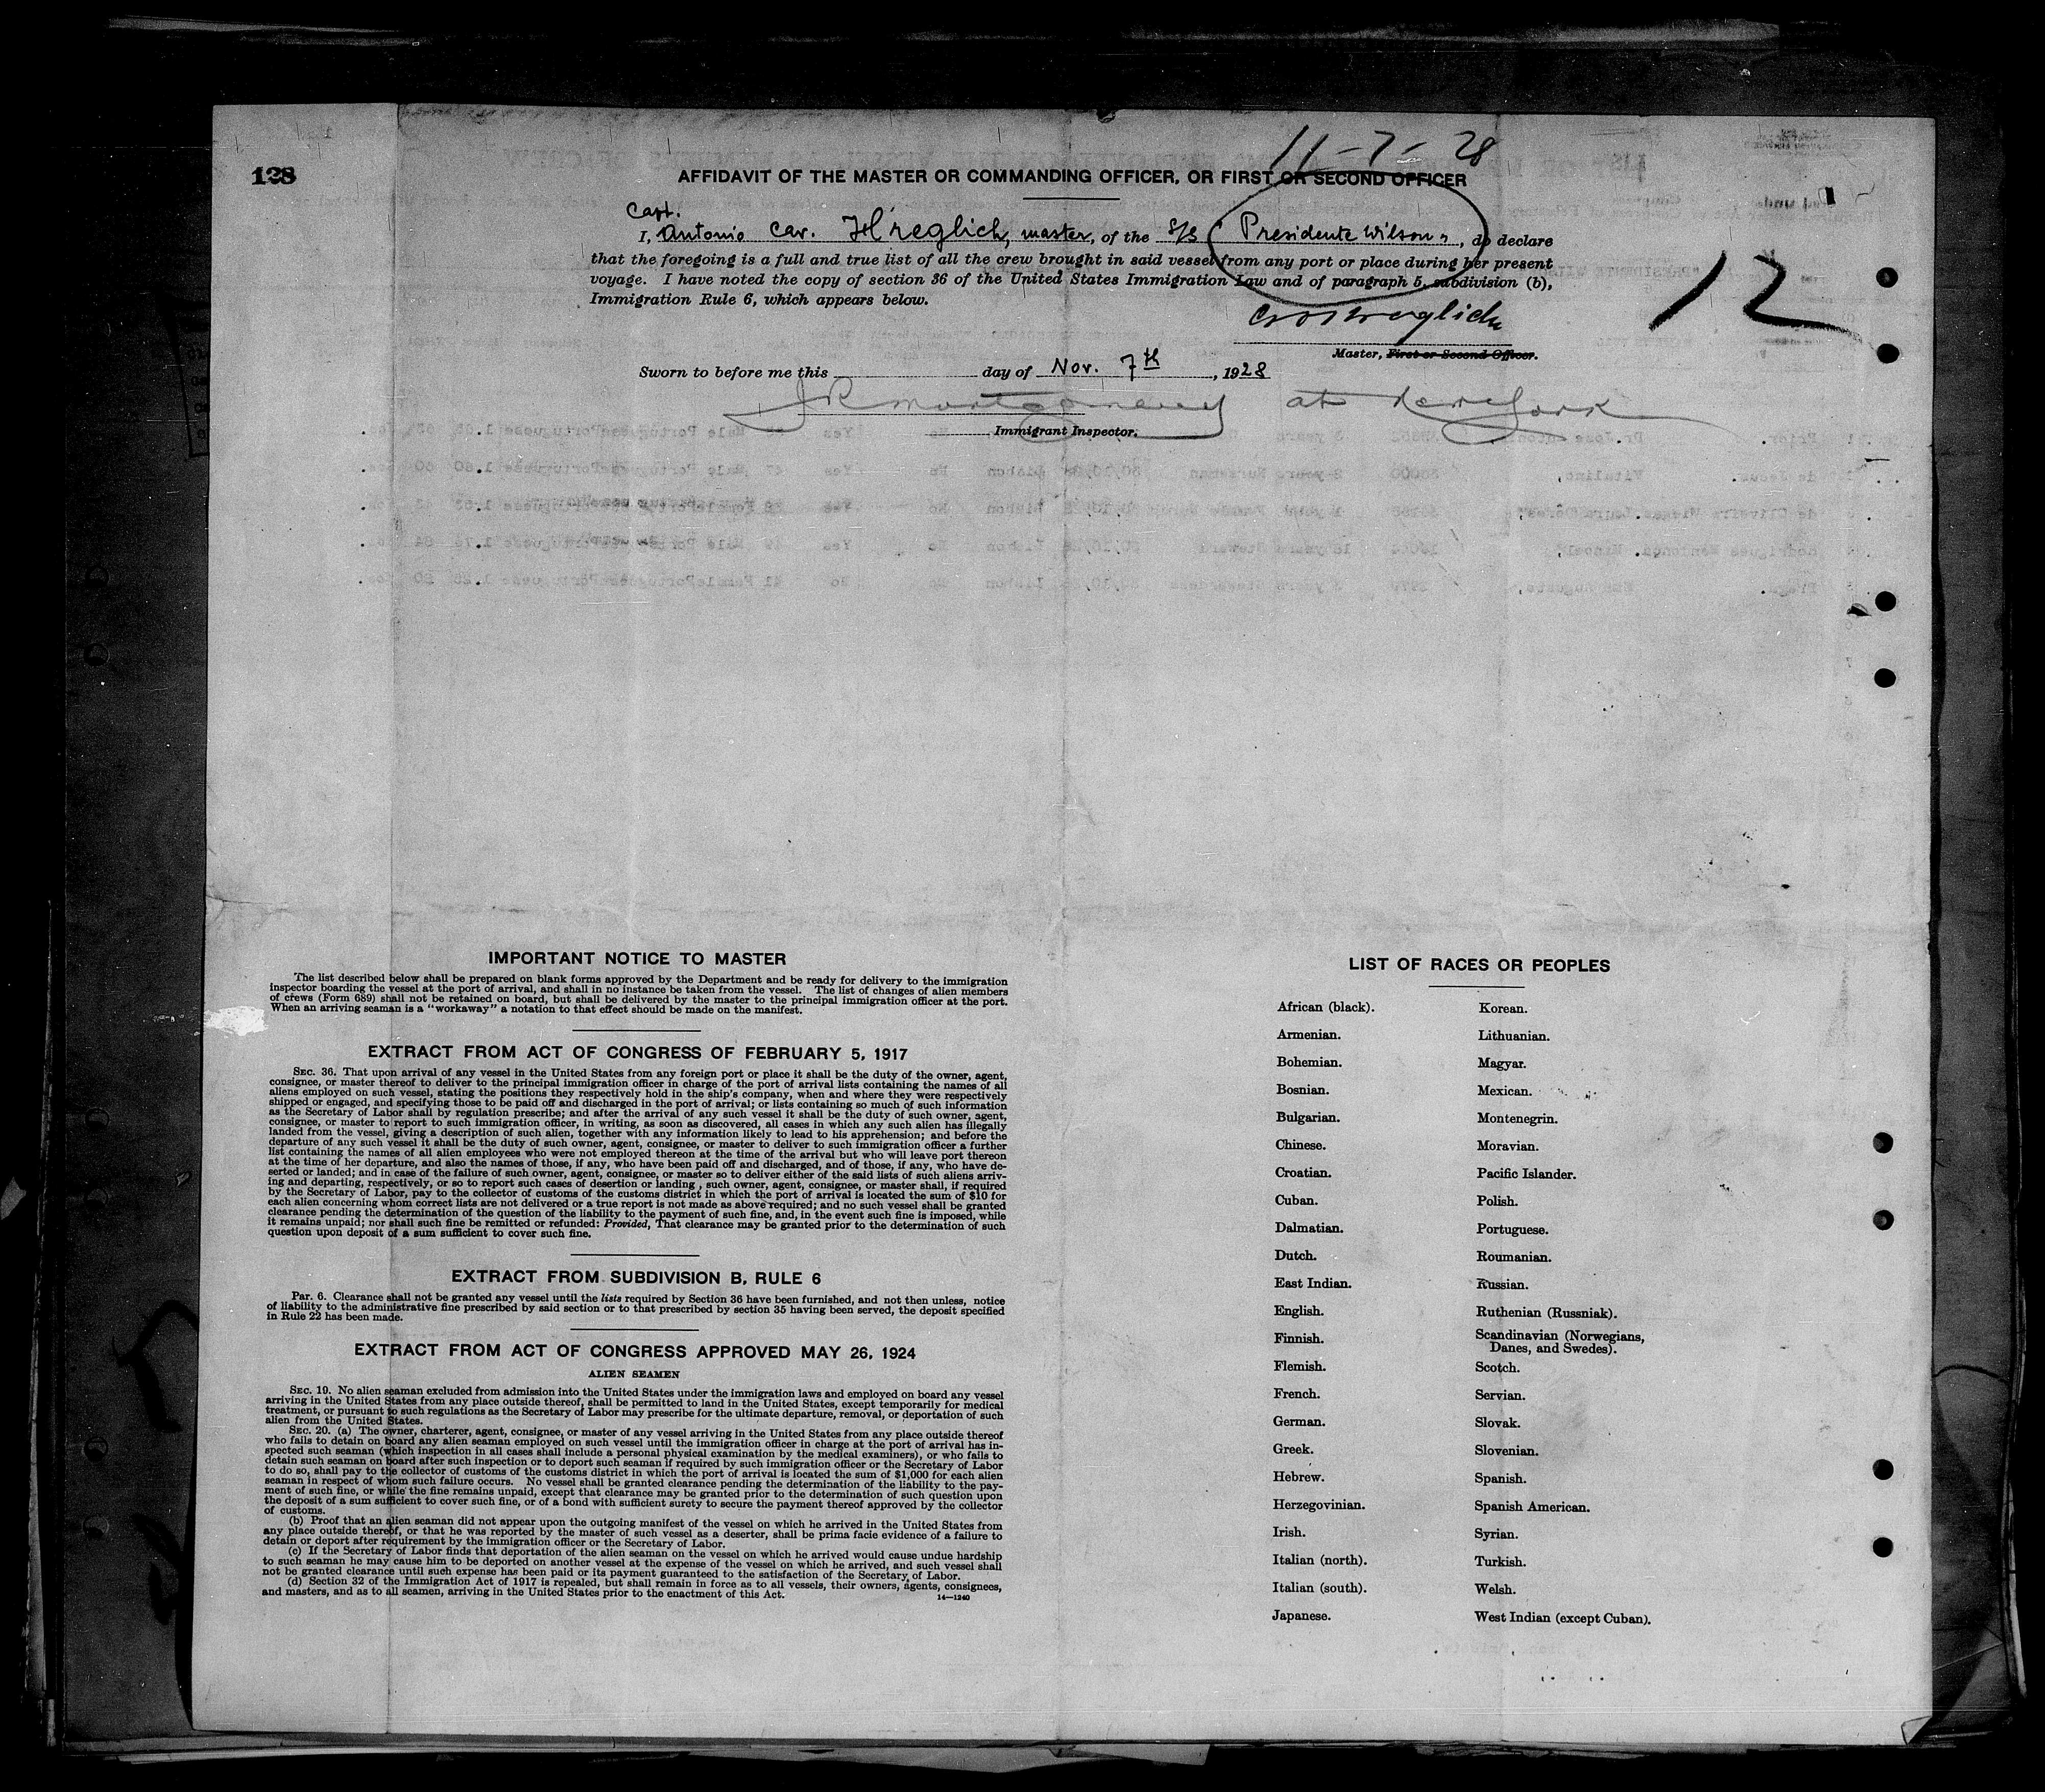 11-7-28
128
AFFIDAVIT OF THE MASTER OR COMMANDING OFFICER, OR FIRST OR SECOND OFFICER
Capt.
I, Antonio Cav. Hreglich, master, of the S/S "Presidente Wilson", do declare
that the foregoing is a full and true list of all the crew brought in said vessel from any port or place during her present
voyage. I have noted the copy of section 36 of the United States Immigration Law and of paragraph 5, subdivision (b),
Immigration Rule 6, which appears below.
12
Master, First or Second Officer.
Sworn to before me this day of Nov. 7th, 1928
JR Montgomery at New York
Immigrant Inspector.
IMPORTANT NOTICE TO MASTER
The list described below shall be prepared on blank forms approved by the Department and be ready for delivery to the immigration
inspector boarding the vessel at the port of arrival, and shall in no instance be taken from the vessel. The list of changes of alien members
of crews (Form 689) shall not be retained on board, but shall be delivered by the master to the principal immigration officer at the port.
When an arriving seaman is a "workaway" a notation to that effect should be made on the manifest.
EXTRACT FROM ACT OF CONGRESS OF FEBRUARY 5, 1917
SEC. 36. That upon arrival of any vessel in the United States from any foreign port or place it shall be the duty of the owner, agent,
consignee, or master thereof to deliver to the principal immigration officer in charge of the port of arrival lists containing the names of all
aliens employed on such vessel, stating the positions they respectively hold in the ship's company, when and where they were respectively
shipped or engaged, and specifying those to be paid off and discharged in the port of arrival; or lists containing so much of such information
as the Secretary of Labor shall by regulation prescribe; and after the arrival of any such vessel it shall be the duty of such owner, agent,
consignee, or master to report to such immigration officer, in writing, as soon as discovered, all cases in which any such alien has illegally
landed from the vessel, giving a description of such alien, together with any information likely to lead to his apprehension; and before the
departure of any such vessel it shall be the duty of such owner, agent, consignee, or master to deliver to such immigration officer a further
list containing the names of all alien employees who were not employed thereon at the time of the arrival but who will leave port thereon
at the time of her departure, and also the names of those, if any, who have been paid off and discharged, and of those, if any, who have de-
serted or landed; and in case of the failure of such owner, agent, consignee, or master so to deliver either of the said lists of such aliens arriv-
ing and departing, respectively, or so to report such cases of desertion or landing , such owner, agent, consignee, or master shall, if required
by the Secretary of Labor, pay to the collector of customs of the customs district in which the port of arrival is located the sum of $10 for
each alien concerning whom correct lists are not delivered or a true report is not made as above required; and no such vessel shall be granted
clearance pending the determination of the question of the liability to the payment of such fine, and, in the event such fine is imposed, while
it remains unpaid; nor shall such fine be remitted or refunded: Provided, That clearance may be granted prior to the determination of such
question upon deposit of a sum sufficient to cover such fine.
EXTRACT FROM SUBDIVISION B, RULE 6
Par. 6. Clearance shall not be granted any vessel until the lists required by Section 36 have been furnished, and not then unless, notice
of liability to the administrative fine prescribed by said section or to that prescribed by section 35 having been served, the deposit specified
in Rule 22 has been made.
EXTRACT FROM ACT OF CONGRESS APPROVED MAY 26, 1924
ALIEN SEAMEN
SEC. 19. No alien seaman excluded from admission into the United States under the immigration laws and employed on board any vessel
arriving in the United States from any place outside thereof, shall be permitted to land in the United States, except temporarily for medical
treatment, or pursuant to such regulations as the Secretary of Labor may prescribe for the ultimate departure, removal, or deportation of such
alien from the United States.
SEC. 20. (a) The owner, charterer, agent, consignee, or master of any vessel arriving in the United States from any place outside thereof
who fails to detain on board any alien seaman employed on such vessel until the immigration officer in charge at the port of arrival has in-
spected such seaman (which inspection in all cases shall include a personal physical examination by the medical examiners), or who fails to
detain such seaman on board after such inspection or to deport such seaman if required by such immigration officer or the Secretary of Labor
to do so, shall pay to the collector of customs of the customs district in which the port of arrival is located the sum of $1,000 for each alien
seaman in respect of whom such failure occurs. No vessel shall be granted clearance pending the determination of the liability to the pay-
ment of such fine, or while the fine remains unpaid, except that clearance may be granted prior to the determination of such question upon
the deposit of a sum sufficient to cover such fine, or of a bond with sufficient surety to secure the payment thereof approved by the collector
of customs.
(b) Proof that an alien seaman did not appear upon the outgoing manifest of the vessel on which he arrived in the United States from
any place outside thereof, or that he was reported by the master of such vessel as a deserter, shall be prima facie evidence of a failure to
detain or deport after requirement by the immigration officer or the Secretary of Labor.
(c) If the Secretary of Labor finds that deportation of the alien seaman on the vessel on which he arrived would cause undue hardship
to such seaman he may cause him to be deported on another vessel at the expense of the vessel on which he arrived, and such vessel shall
not be granted clearance until such expense has been paid or its payment guaranteed to the satisfaction of the Secretary of Labor.
(d) Section 32 of the Immigration Act of 1917 is repealed, but shall remain in force as to all vessels, their owners, agents, consignees,
and masters, and as to all seamen, arriving in the United States prior to the enactment of this Act.
14—1240
LIST OF RACES OR PEOPLES
African (black).
Armenian.
Bohemian.
Bosnian.
Bulgarian.
Chinese.
Croatian.
Cuban.
Dalmatian.
Dutch.
East Indian.
English.
Finnish.
Flemish.
French.
German.
Greek.
Hebrew.
Herzegovinian.
Irish.
Italian (north).
Italian (south).
Japanese.
Korean.
Lithuanian.
Magyar.
Mexican.
Montenegrin.
Moravian.
Pacific Islander.
Polish.
Portuguese.
Roumanian.
Russian.
Ruthenian (Russniak).
Scandinavian (Norwegians,
Danes, and Swedes).
Scotch.
Servian.
Slovak.
Slovenian.
Spanish.
Spanish American.
Syrian.
Turkish.
Welsh.
West Indian (except Cuban).